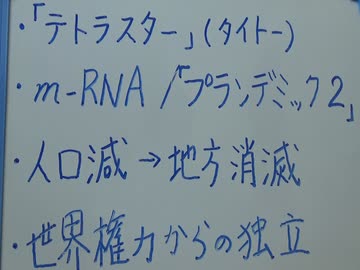 ・「テトラスター」(タイトー)
・m-RNA/「プランデミック2」
・人口減→地方消滅
・世界権力からの独立